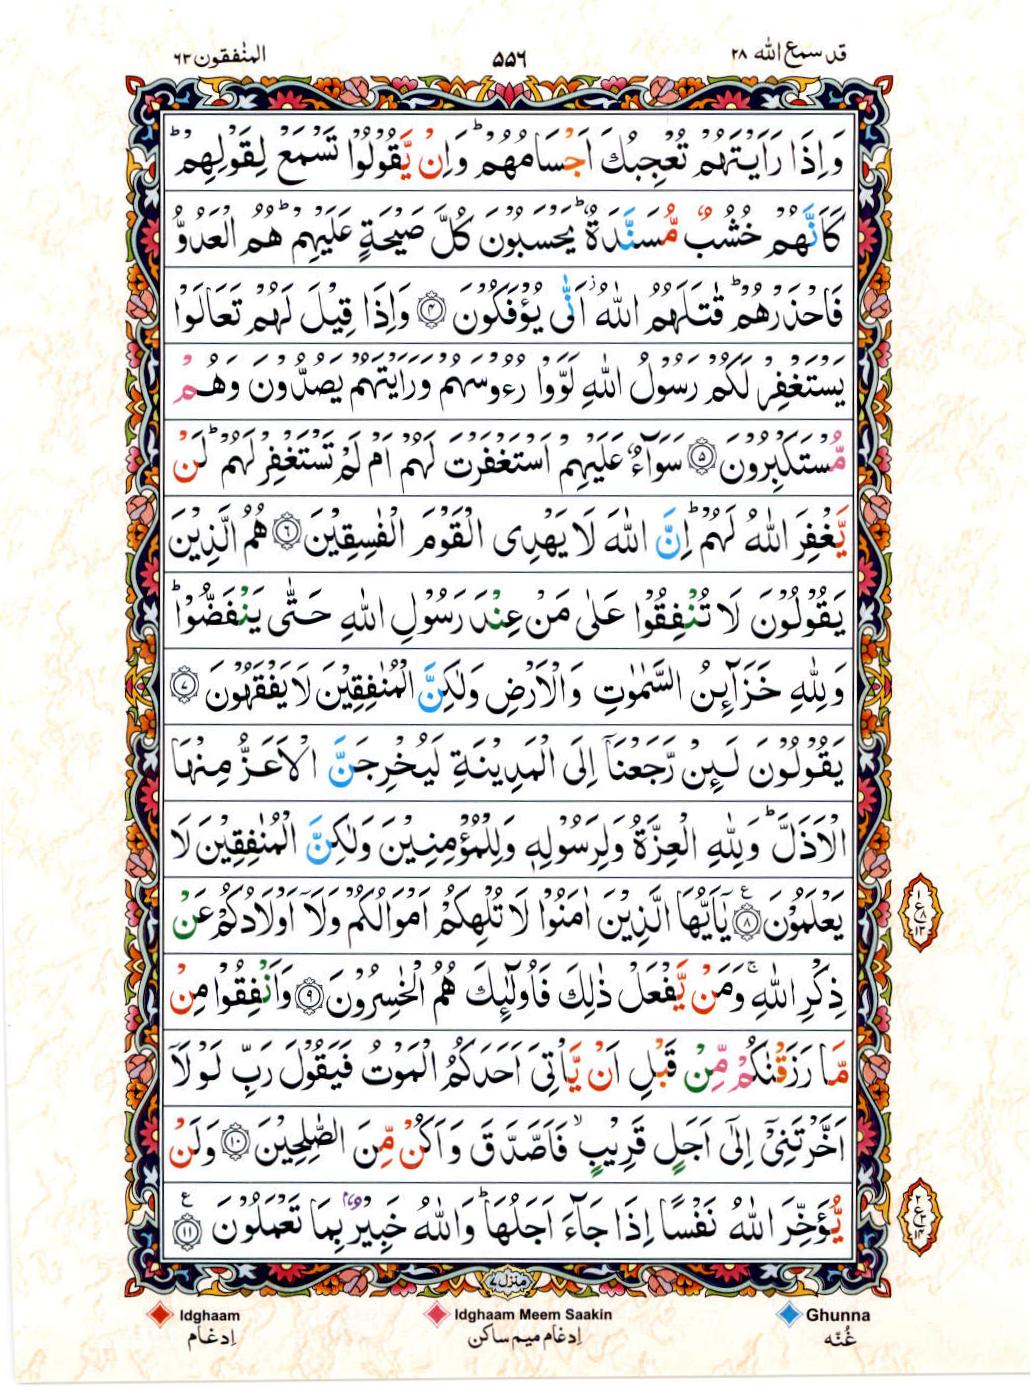 المنٰفقون ٦٣
٥٥٦
قد سمع الله ٢٨
وَاِذَا رَاَيْتَهُمْ تُعْجِبُكَ اَجْسَامُهُمْ ؕ وَاِنْ يَّقُوْلُوْا تَسْمَعْ لِقَوْلِهِمْ ؕ
كَاَنَّهُمْ خُشُبٌ مُّسَنَّدَةٌ ؕ يَحْسَبُوْنَ كُلَّ صَيْحَةٍ عَلَيْهِمْ ؕ هُمُ الْعَدُوُّ
فَاحْذَرْهُمْ ؕ قٰتَلَهُمُ اللّٰهُ ؗ اَنّٰى يُؤْفَكُوْنَ ﴿۴﴾ وَاِذَا قِيْلَ لَهُمْ تَعَالَوْا
يَسْتَغْفِرْ لَكُمْ رَسُوْلُ اللّٰهِ لَوَّوْا رُءُوْسَهُمْ وَرَاَيْتَهُمْ يَصُدُّوْنَ وَهُمْ
مُّسْتَكْبِرُوْنَ ﴿۵﴾ سَوَآءٌ عَلَيْهِمْ اَسْتَغْفَرْتَ لَهُمْ اَمْ لَمْ تَسْتَغْفِرْ لَهُمْ ؕ لَنْ
يَّغْفِرَ اللّٰهُ لَهُمْ ؕ اِنَّ اللّٰهَ لَا يَهْدِى الْقَوْمَ الْفٰسِقِيْنَ ﴿۶﴾ هُمُ الَّذِيْنَ
يَقُوْلُوْنَ لَا تُنْفِقُوْا عَلٰى مَنْ عِنْدَ رَسُوْلِ اللّٰهِ حَتّٰى يَنْفَضُّوْا ؕ
وَلِلّٰهِ خَزَآئِنُ السَّمٰوٰتِ وَالْاَرْضِ وَلٰكِنَّ الْمُنٰفِقِيْنَ لَا يَفْقَهُوْنَ ﴿۷﴾
يَقُوْلُوْنَ لَئِنْ رَّجَعْنَاۤ اِلَى الْمَدِيْنَةِ لَيُخْرِجَنَّ الْاَعَزُّ مِنْهَا
الْاَذَلَّ ؕ وَلِلّٰهِ الْعِزَّةُ وَلِرَسُوْلِهٖ وَلِلْمُؤْمِنِيْنَ وَلٰكِنَّ الْمُنٰفِقِيْنَ لَا
يَعْلَمُوْنَ ﴿۸﴾ ع يٰۤاَيُّهَا الَّذِيْنَ اٰمَنُوْا لَا تُلْهِكُمْ اَمْوَالُكُمْ وَلَاۤ اَوْلَادُكُمْ عَنْ
ذِكْرِ اللّٰهِ ۚ وَمَنْ يَّفْعَلْ ذٰلِكَ فَاُولٰٓئِكَ هُمُ الْخٰسِرُوْنَ ﴿۹﴾ وَاَنْفِقُوْا مِنْ
مَّا رَزَقْنٰكُمْ مِّنْ قَبْلِ اَنْ يَّاْتِىَ اَحَدَكُمُ الْمَوْتُ فَيَقُوْلَ رَبِّ لَوْ لَاۤ
اَخَّرْتَنِىْۤ اِلٰٓى اَجَلٍ قَرِيْبٍ ۙ فَاَصَّدَّقَ وَاَكُنْ مِّنَ الصّٰلِحِيْنَ ﴿۱۰﴾ وَلَنْ
يُّؤَخِّرَ اللّٰهُ نَفْسًا اِذَا جَآءَ اَجَلُهَا ؕ وَاللّٰهُ خَبِيْرٌۢ بِمَا تَعْمَلُوْنَ ﴿۱۱﴾ ع
منزل ٧
Idghaam
اِدغام
Idghaam Meem Saakin
اِدغام میم ساکن
Ghunna
غُنّه